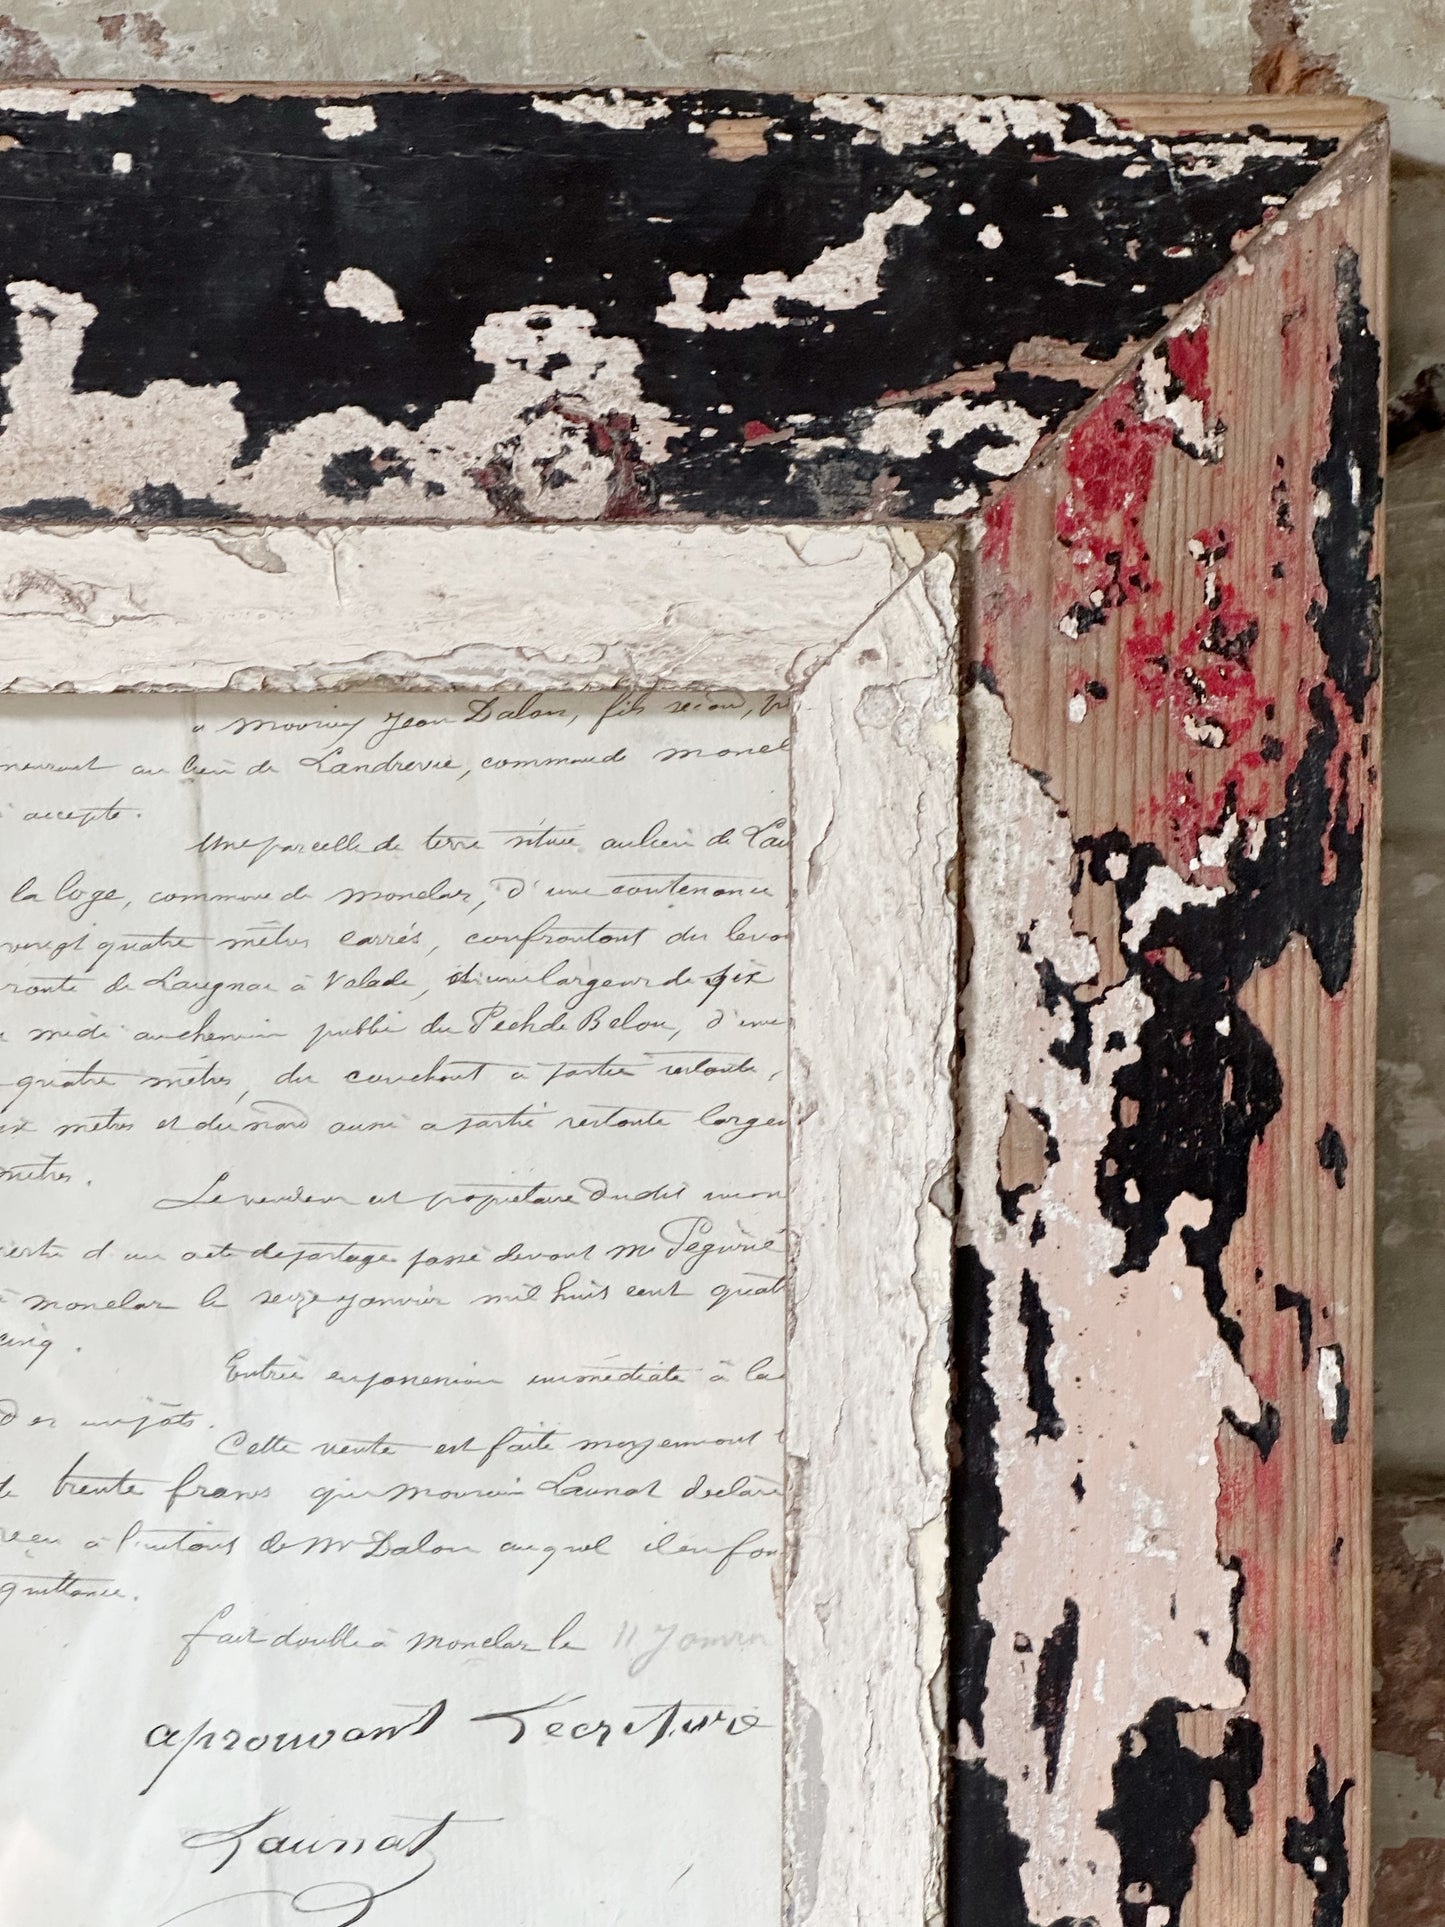 a Mouriey Jean Dalon, fils second,
au lieu de Landrevie, commune de Moncl
accepte.
Une parcelle de terre située au lieu de Lau
la loge, commune de Monclar, d'une contenance
vingt quatre mètres carrés, confrontant du leva
route de Laugnac à Valade, d'une largeur de six
midi au chemin public du Pech de Belou, d'une
quatre mètres, du couchant à partie restante,
mètres et du nord aussi a partie restante large
mètres.
Le vendeur est propriétaire dudit
d'un acte de partage passé devant Me
à Monclar le seize janvier mil huit cent quat
cinq.
Entrée en possession immédiate à la
impôts.
Cette vente est faite moyennant
trente francs que Launat déclare
à l'instant de Mr Dalon auquel il en
quittance.
fait double à Monclar le 11 Janvier
aprouvant l'écriture
Launat